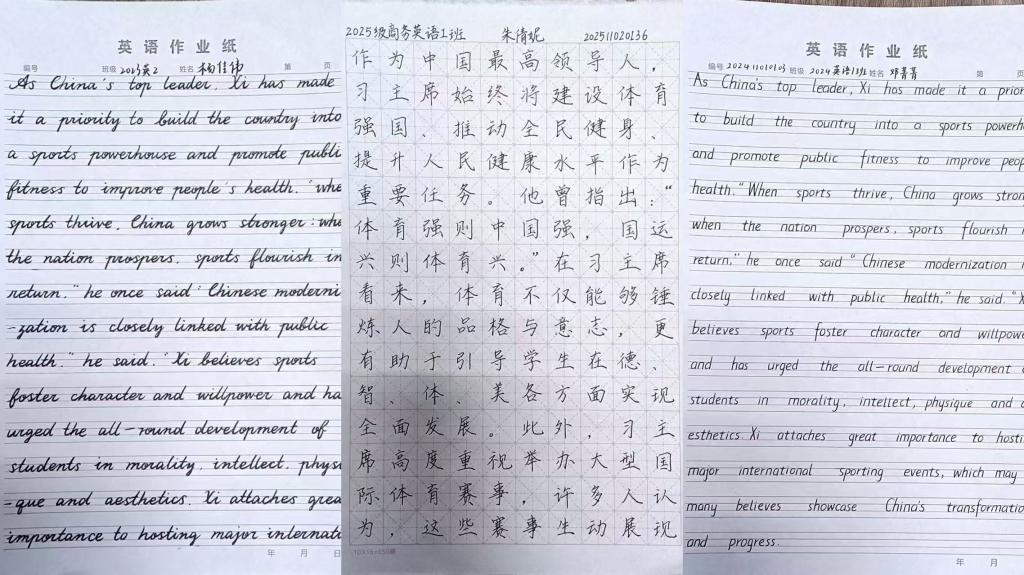 英语作业纸
编号 班级 2023英2 姓名 杨佳伟 第 页
As China's top leader, Xi has made
it a priority to build the country into
a sports powerhouse and promote publi
fitness to improve people's health. "whe
sports thrive, China grows stronger: whe
the nation prospers, sports flourish in
return." he once said "Chinese moderni
-zation is closely linked with public
health." he said. "Xi believes sports
foster character and willpower and ha
urged the all-round development of
students in morality, intellect, physi
-que and aesthetics. Xi attaches grea
importance to hosting major internati
年 月 日
2025级商务英语1班 朱倩妮 202511020136
作为中国最高领导人,
习主席始终将建设体育
强国、推动全民健身、
提升人民健康水平作为
重要任务。他曾指出:“
体育强则中国强,国运
兴则体育兴。”在习主席
看来,体育不仅能够锤
炼人的品格与意志,更
有助于引导学生在德、
智、体、美各方面实现
全面发展。此外,习主
席高度重视举办大型国
际体育赛事,许多人认
为,这些赛事生动展现
英语作业纸
编号 202411010103 班级 2024英语13班 姓名 邓菁菁 第
As China's top leader, Xi has made it a prior
to build the country into a sports powerh
and promote public fitness to improve peop
health." When sports thrive, China grows stron
when the nation prospers, sports flourish i
return," he once said "Chinese modernization i
closely linked with public health," he said. "X
believes sports foster character and willpowe
and has urged the all-round development o
students in morality, intellect, physique and a
esthetics. Xi attaches great importance to hosti
major international sporting events, which may
many believes showcase China's transformatio
and progress.
年 月